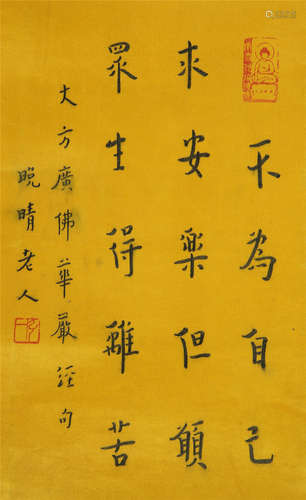 不為自己
求安樂但願
眾生得離苦
大方廣佛華嚴經句
晚晴老人